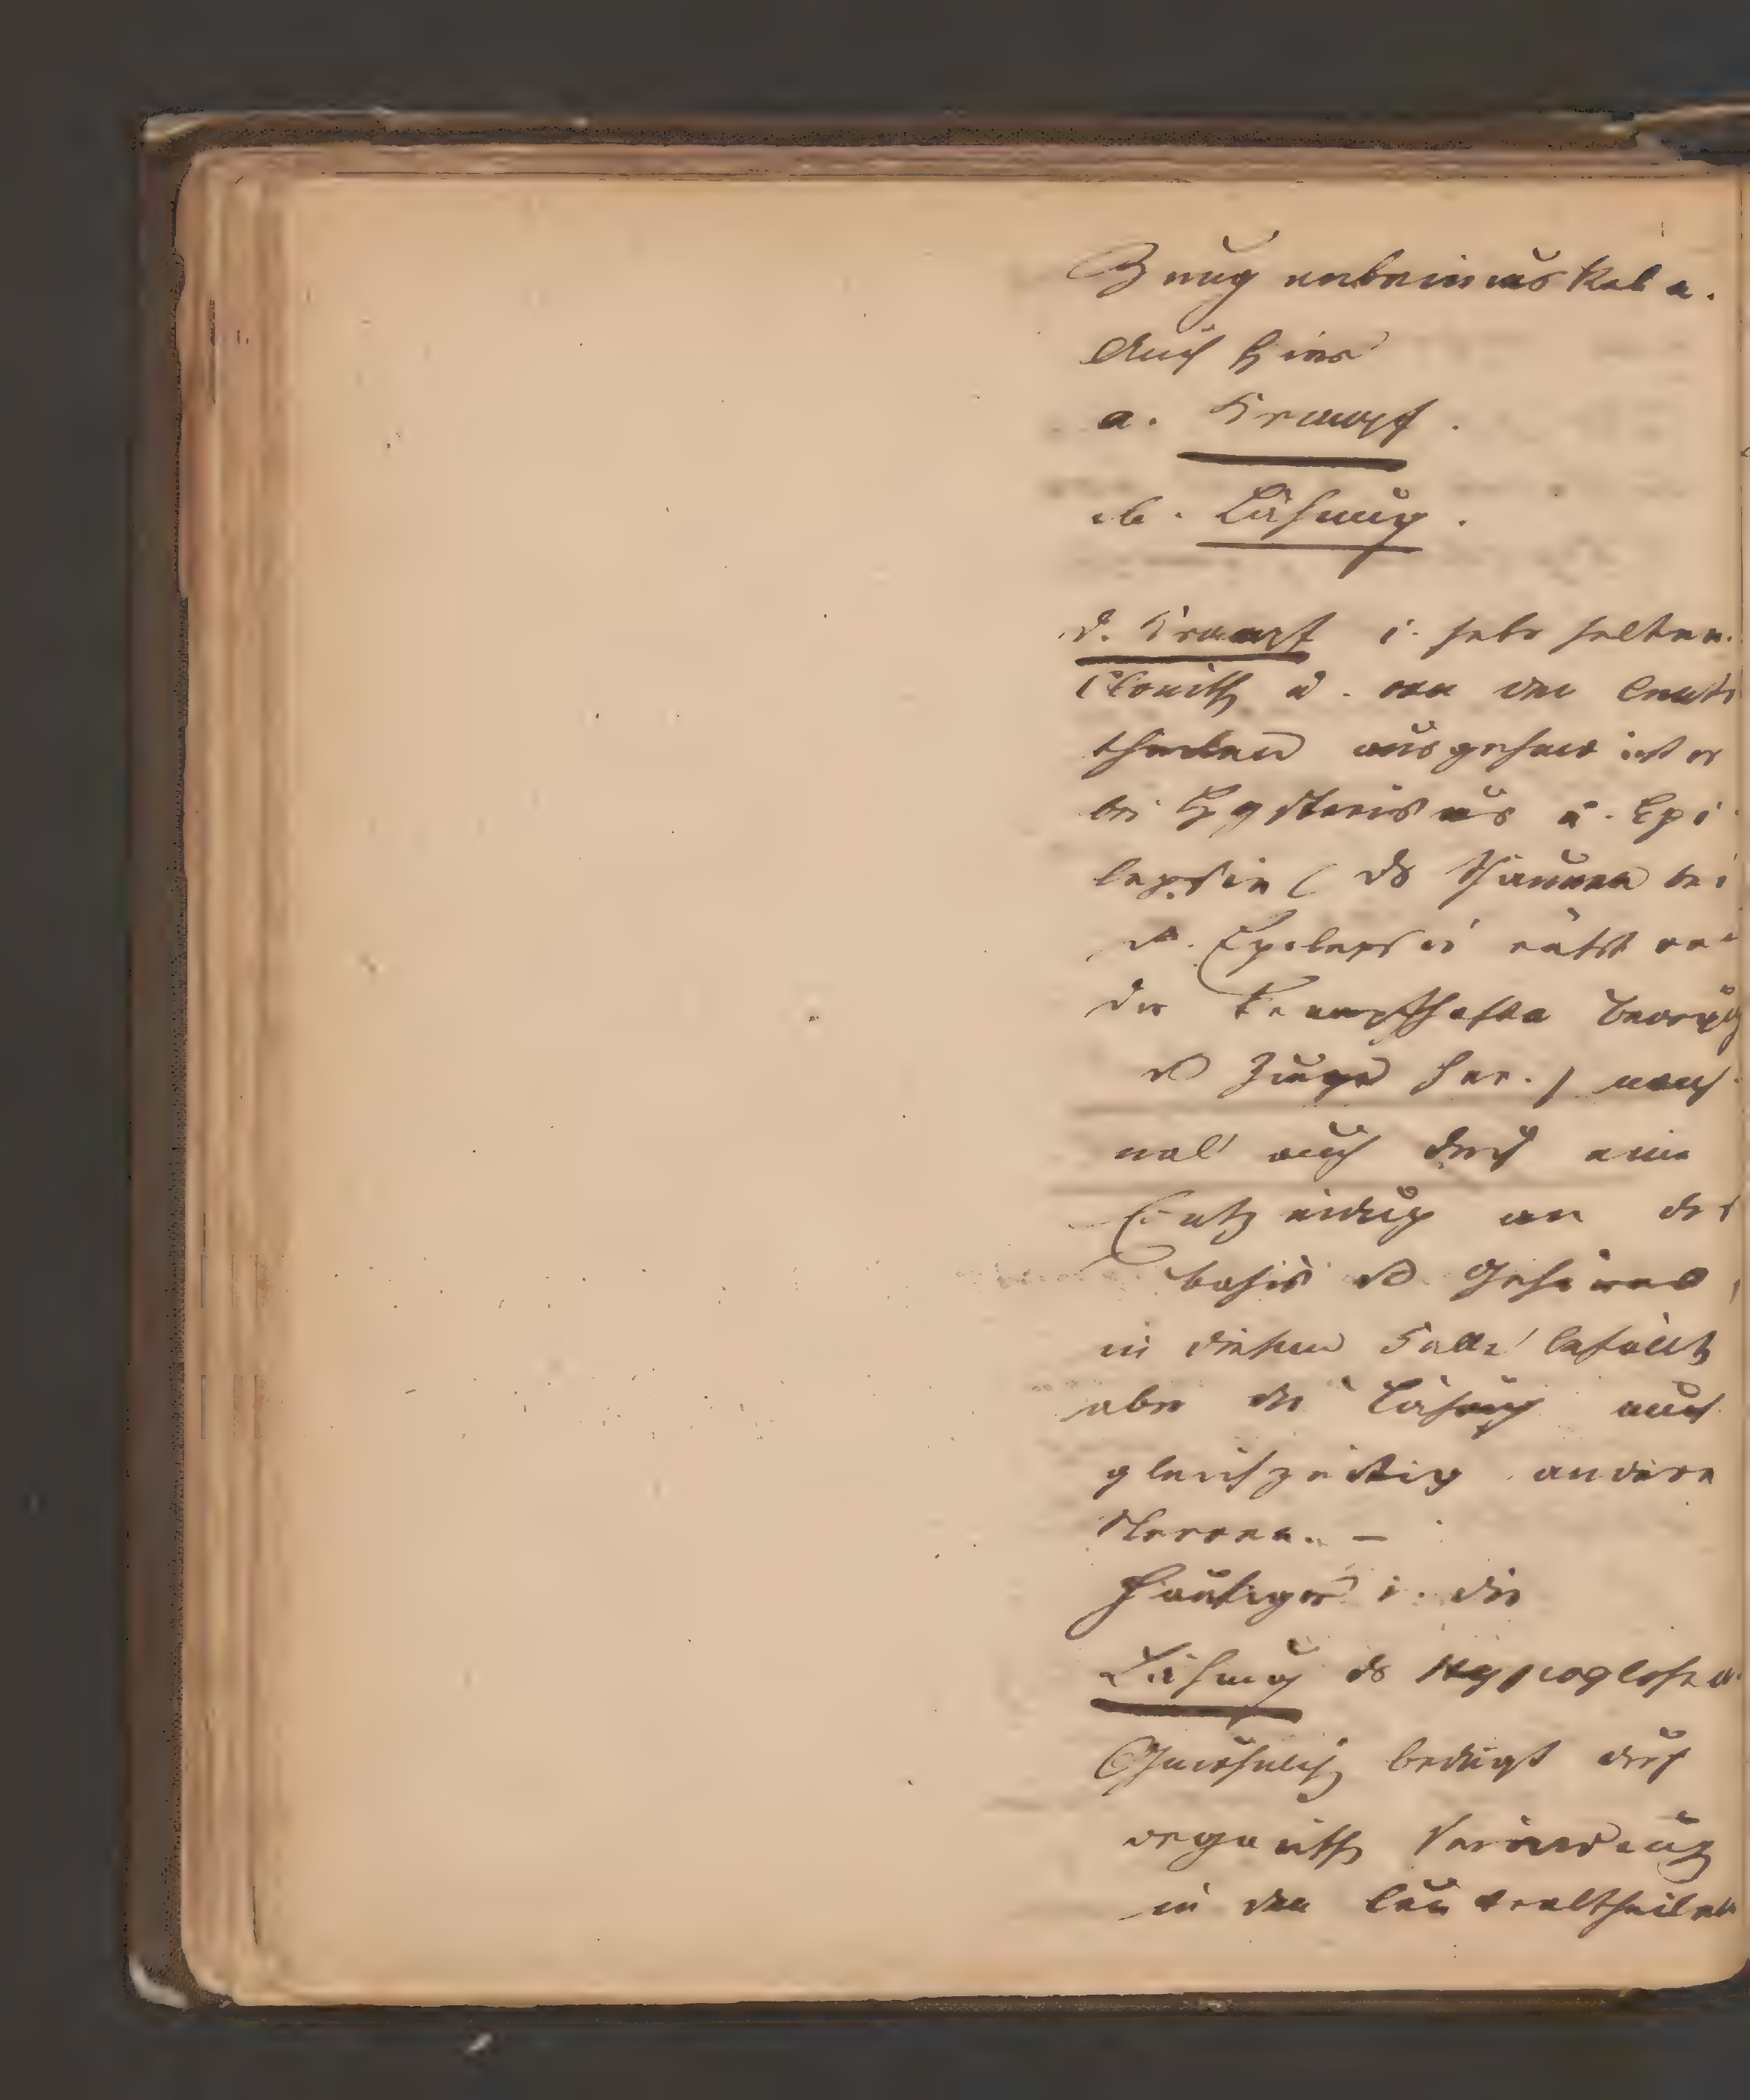 Zungenbeinmuskeln.
Auch hier
a. Krampf.
b. Lähmung.
d. Krampf i. sehr selten.
Clonisch u. von den Centr
theilen ausgehend ist er
bei Hysterismus u. Epi
lepsie (ds Schäumen bei
d. Epilepsie rührt von
der krampfhaften Bewegg
d Zunge her.) manch
mal auch durch eine
Entzündung an der
basis d Gehirns,
in diesem Falle befällt
aber die Lähmung auch
gleichzeitig andere
Nerven. –
Häufiger i. die
Lähmung ds Hypogloss
Gewöhnlich bedingt durch
organisch Veränderung
in den Centraltheilen